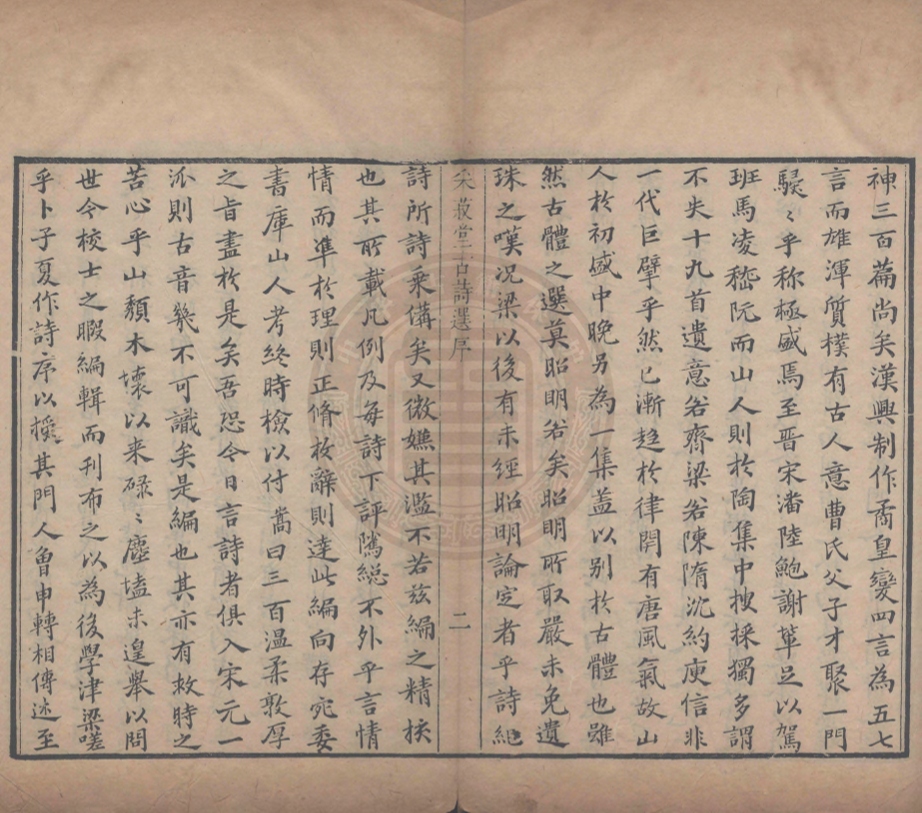 神三百篇尚矣漢興制作矞皇變四言為五七
言而雄渾質樸有古人意曹氏父子才聚一門
駸〻乎称極盛焉至晋宋潘陸鮑謝軰足以駕
班馬凌嵇阮而山人則於陶集中搜採獨多謂
不失十九首遺意若齊梁若陳隋沈約庾信非
一代巨擘乎然已漸趋於律開有唐風氣故山
人於初盛中晚另為一集盖以别於古體也雖
然古體之選莫昭明若矣昭明所取嚴未免遺
珠之嘆况梁以後有未經昭明論定者乎詩紀
采菽堂古詩選序
二
詩所詩乘偹矣又微嫌其濫不若兹編之精核
也其所載凡例及每詩下評隲緫不外乎言情
情而凖於理則正脩於辭則達此編向存宛委
書庫山人考終時檢以付嵩曰三百温柔敦厚
之旨盡於是矣吾恐今日言詩者俱入宋元一
派則古音幾不可識矣是編也其亦有救時之
苦心乎山頹木壞以来碌〻塵壒未遑舉以問
世今校士之暇編輯而刊布之以為後學津梁嗟
乎卜子夏作詩序以授其門人曾申轉相傳述至